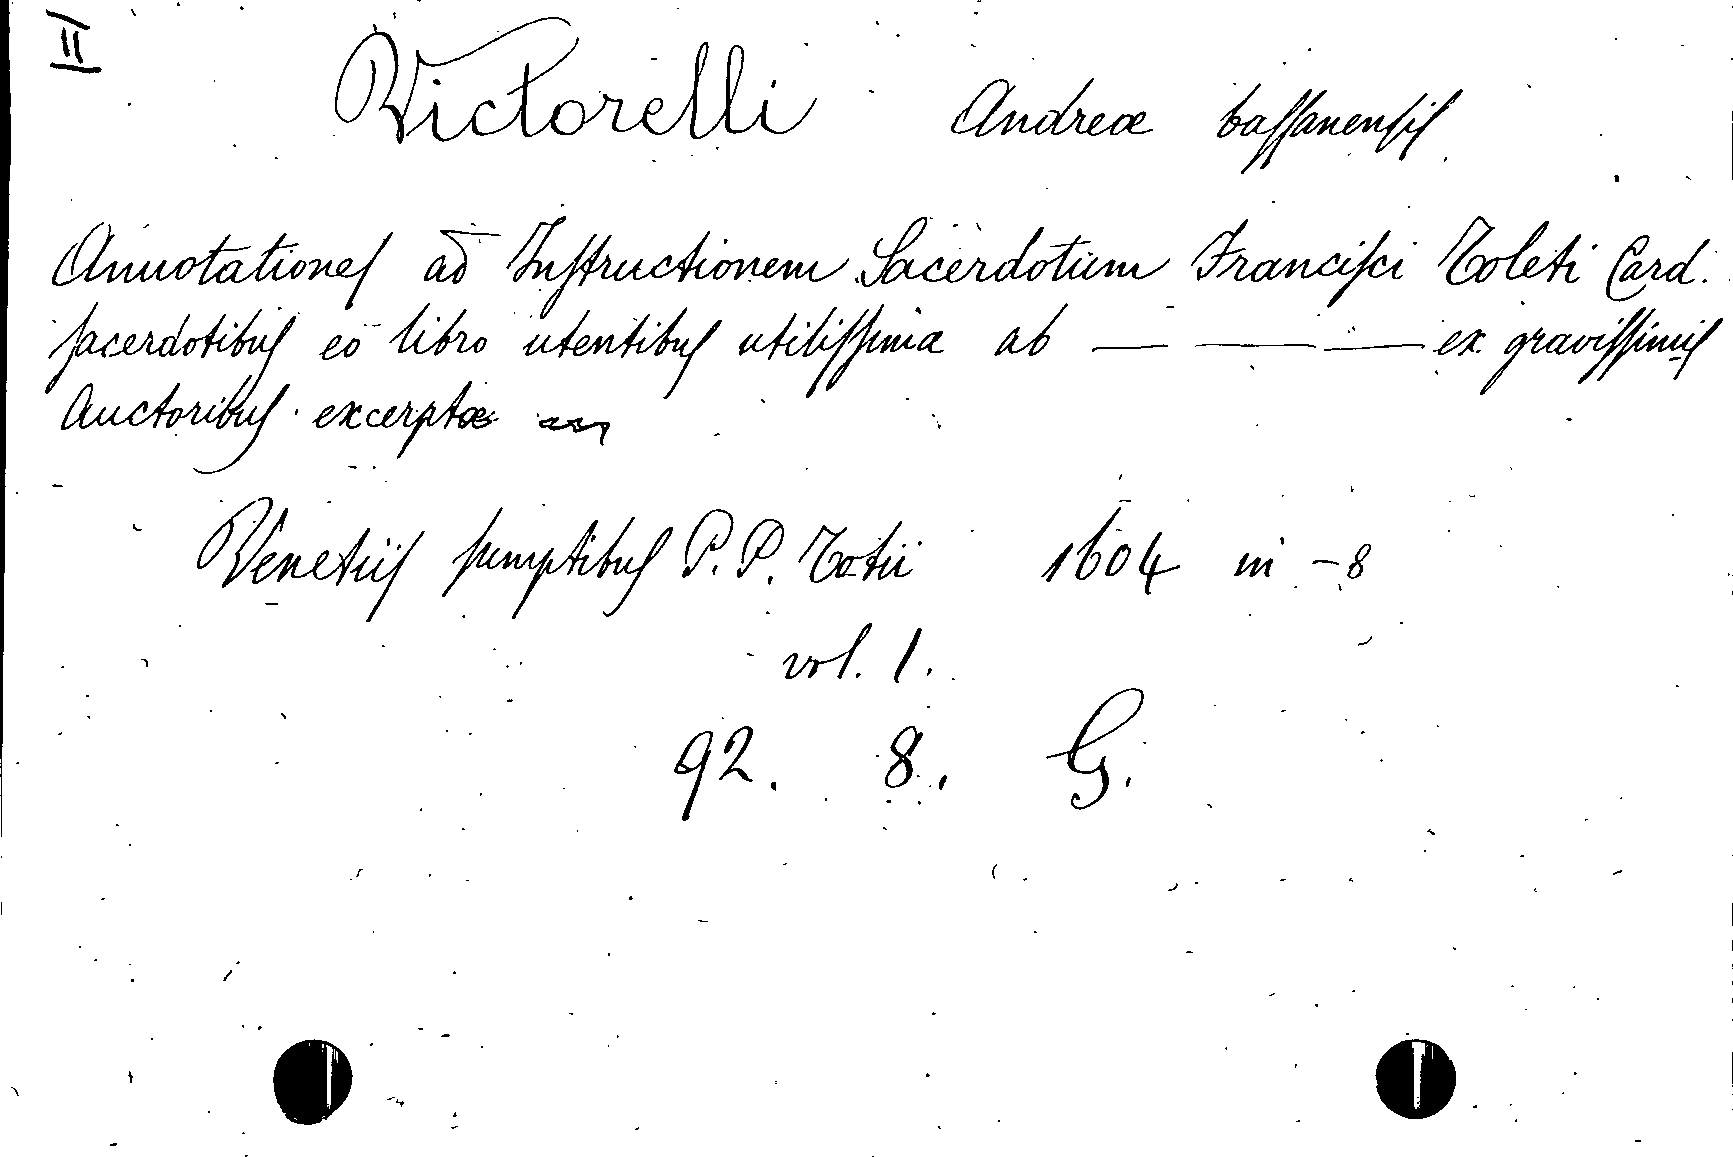 II
Victorelli Andreæ bassanensis
Annotationes ad Instructionem Sacerdotum Francisci Toleti Card.
sacerdotibus eo libro utentibus utilissima ab — — — ex gravissimis
Auctoribus excerptæ
Venetiis sumptibus P. P. Totii 1604 in -8
vol. 1.
92. 8. G.